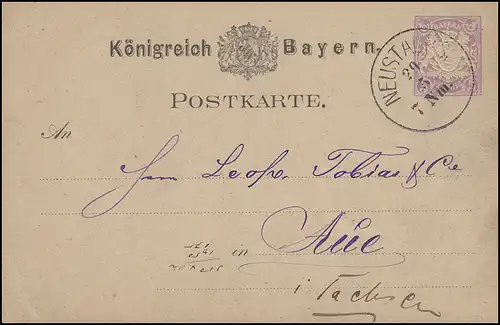 Königreich Bayern.
NEUSTA
POSTKARTE.
7 Nm.
An
Herrn Leop. Tobias & Cie
in Aue
i Sachsen